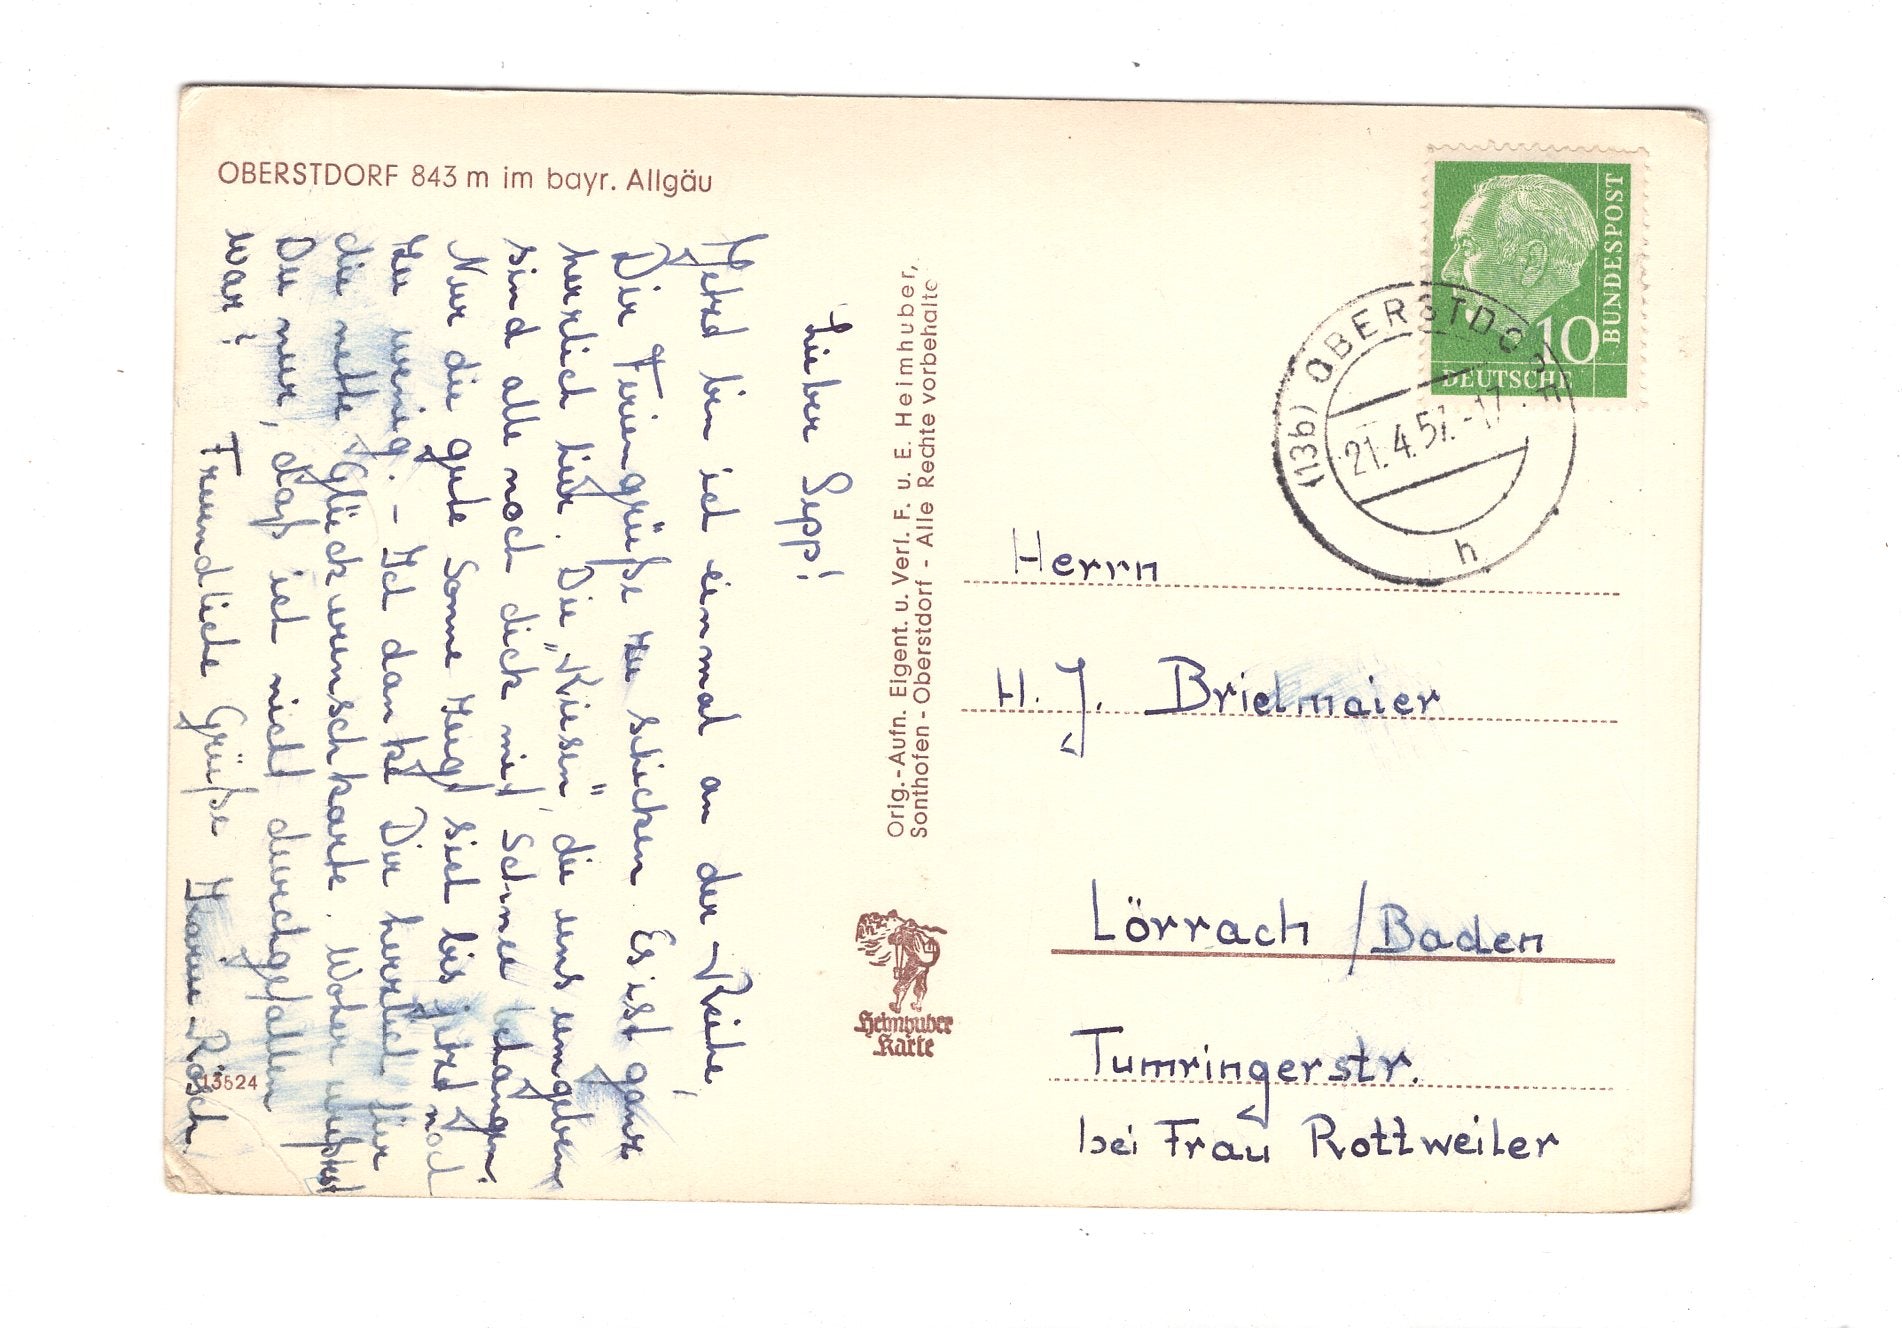 OBERSTDORF 843 m im bayr. Allgäu
Lieber Sepp!
Jetzt bin ich einmal an der Reihe,
Dir Feriengrüße zu schicken. Es ist ganz
herrlich hier. Die „Riesen", die uns umgeben
sind alle noch dick mit Schnee behangen.
Nur die gute Sonne zeigt sich bis jetzt noch
zu wenig. - Ich danke Dir herzlich für
die nette Glückwunschkarte. Woher wußtest
Du nur, daß ich nicht durchgefallen
war?
Freundliche Grüße Karin Rösch.
13524
Orig.-Aufn. Eigent. u. Verl. F. u. E. Heimhuber,
Sonthofen - Oberstdorf - Alle Rechte vorbehalte
Heimhuber
Karte
DEUTSCHE
BUNDESPOST
10
(13b) OBERSTDORF
21.4.57.-17
h
Herrn
H. J. Brielmaier
Lörrach / Baden
Tumringerstr.
bei Frau Rottweiler